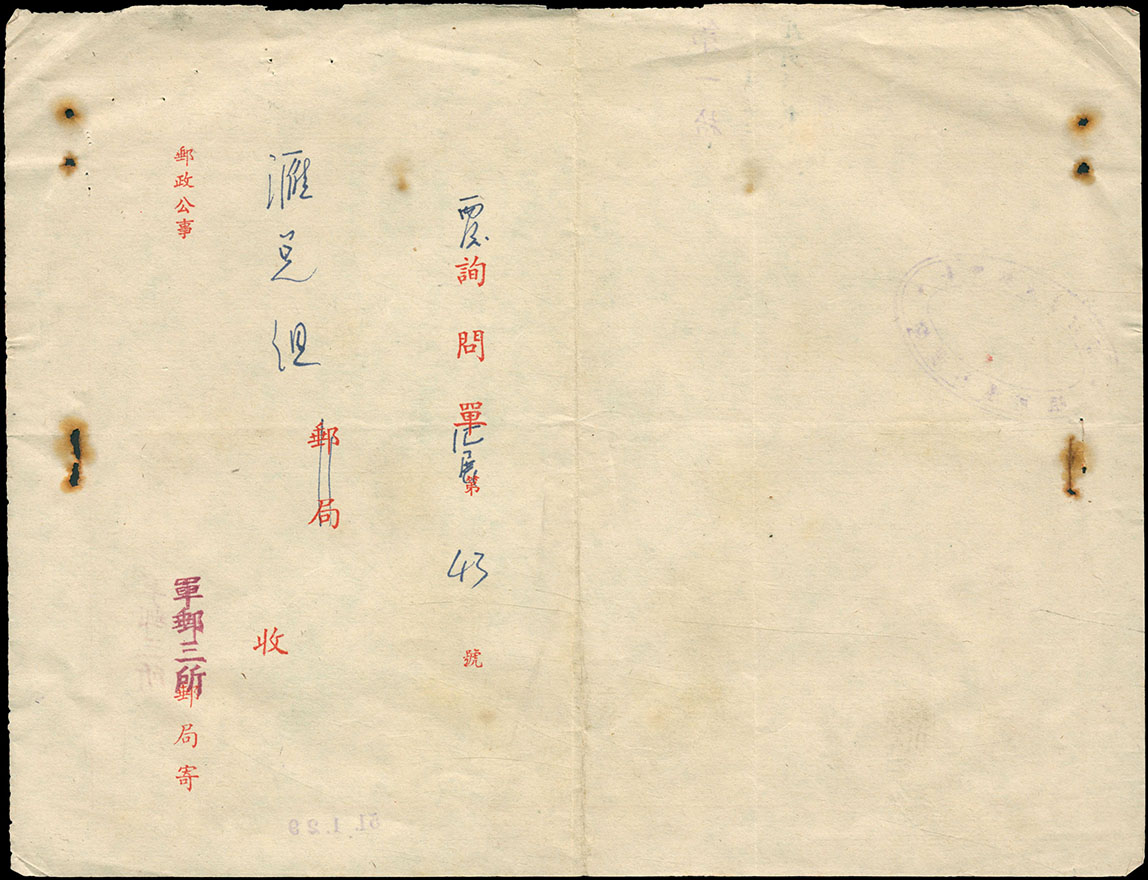 覆詢問單匯展第 43 號
匯兌組郵局收
郵政公事
軍郵三所郵局寄
51.1.29